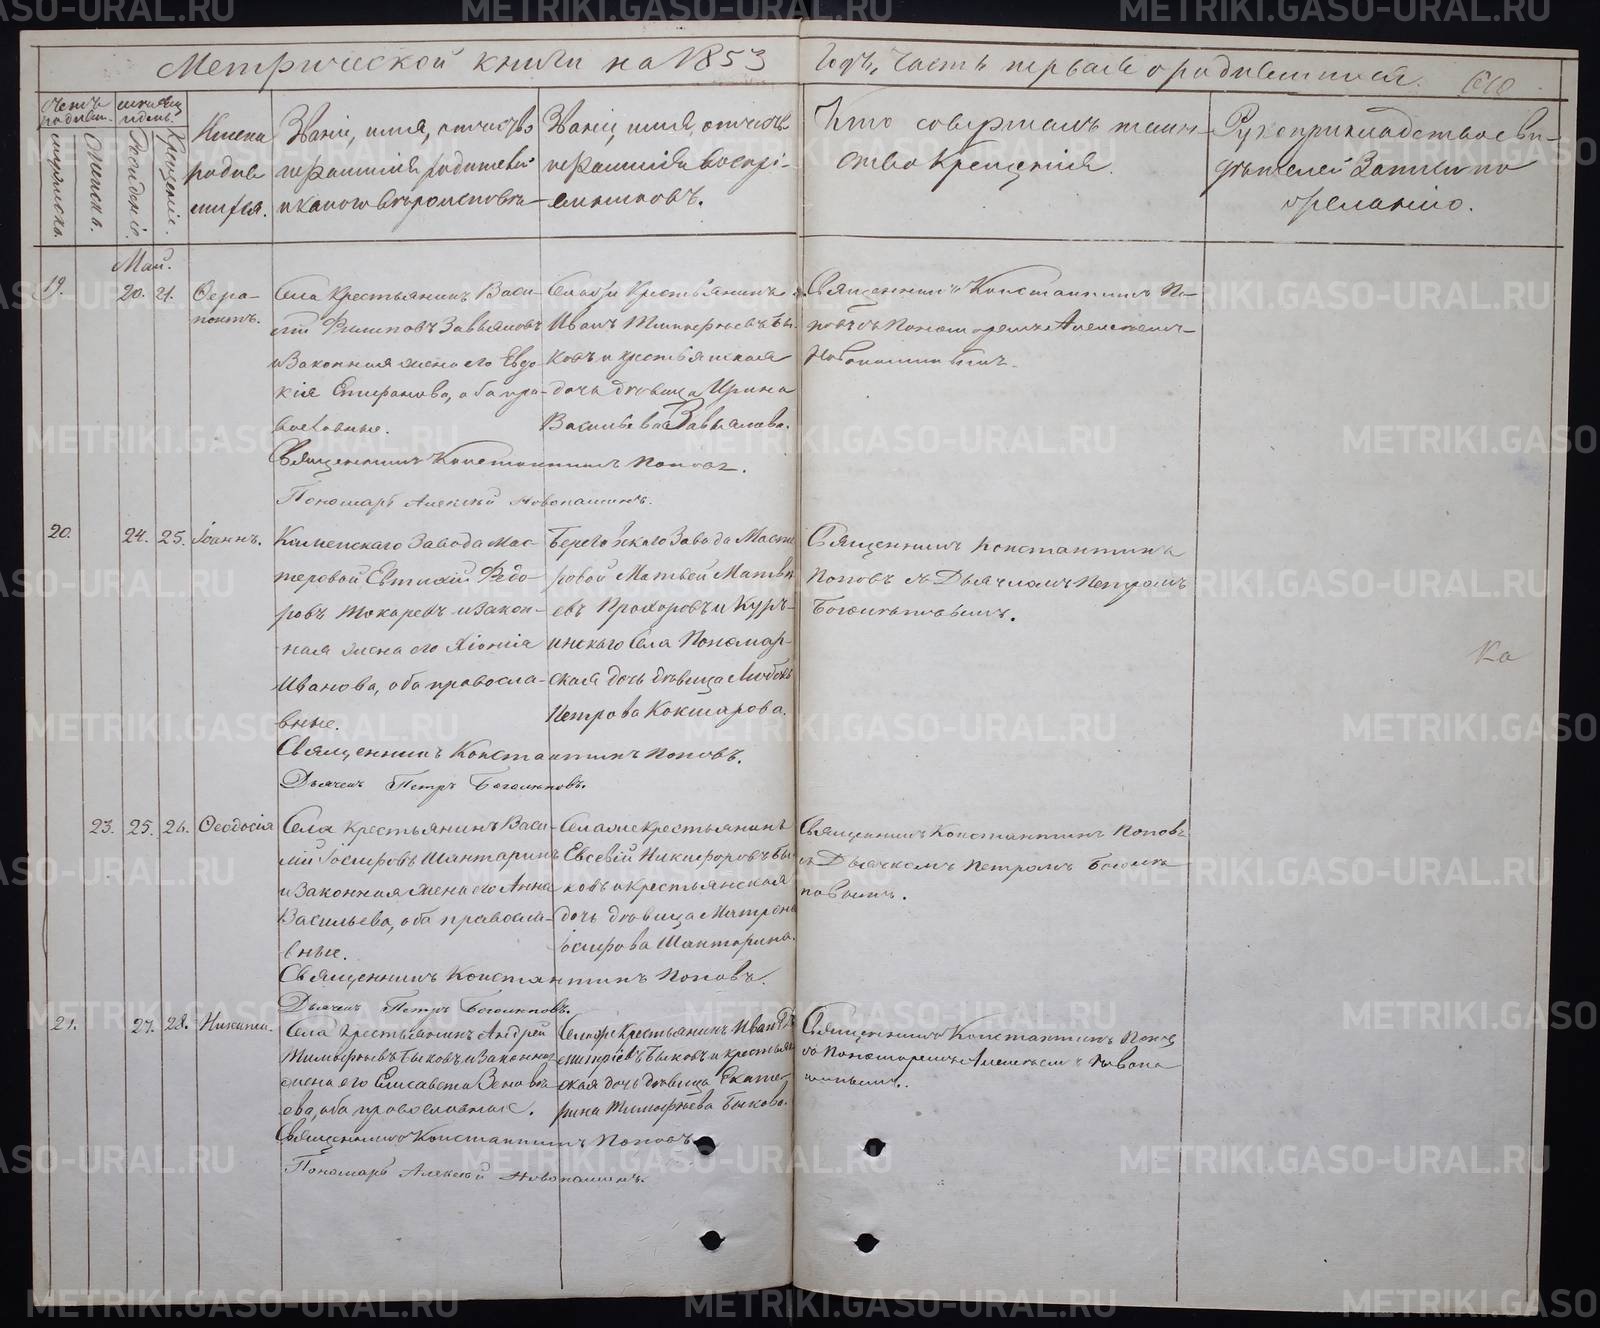 Метрической книги на 1853
годъ, часть первая о родившихся.
Счетъ родивш.
мужеска.
женска.
месяцъ и день.
Рождения.
Крещения.
Имена
родив
шихся.
Звание, имя, отчество
и фамилия родителей
и какого вероисповеда-
Звание, имя, отчество
и фамилия воспри-
емниковъ.
Кто совершалъ таин-
ство крещения.
Рукоприкладство сви-
детелей записи по
желанию.
Май.
19.
20. 21.
Фера-
понтъ.
Села крестьянинъ Васи-
лий Филиповъ Завьяловъ
и законная жена его Евдо-
кия Епифанова, оба пра-
вославные.
Священникъ Константинъ Поповъ.
Пономарь Алексей Новопашинъ.
Села же крестьянинъ
Иванъ Тимофеевъ Бы-
ковъ и крестьянская
дочь девица Ирина
Васильева Завьялова.
Священникъ Константинъ По-
повъ съ Пономаремъ Алексеемъ
Новопашинымъ.
20.
24. 25.
Иоаннъ.
Каменскаго Завода Мас-
теровой Евтихий Федо-
ровъ Токаревъ и закон-
ная жена его Хиония
Иванова, оба правосла-
вные.
Священникъ Константинъ Поповъ.
Дьячекъ Петръ Боголеповъ.
Завода Масте
ровой Матвей Матве
евъ Прохоровъ и
села Пономар-
ская дочь девица Любовь
Петрова Кокшарова.
Священникъ Константинъ
Поповъ съ Дьячкомъ Петромъ
Боголеповымъ.
Ка
23. 25. 26.
Феодосия
Села крестьянинъ Васи-
лий Иосифовъ Шантаринъ
и законная жена его Анна
Васильева, оба правосла-
вные.
Священникъ Константинъ Поповъ.
Дьячекъ Петръ Боголеповъ.
Села же крестьянинъ
Евсевий Никифоровъ Бы
ковъ и крестьянская
дочь девица Матрена
Иосифова Шантарина.
Священникъ Константинъ Поповъ
съ Дьячкомъ Петромъ Боголе
повымъ.
21.
27. 28.
Никита.
Села крестьянинъ Андрей
Тимофеевъ Быковъ и законная
жена его Елисавета
ова, оба православные.
Священникъ Константинъ Поповъ
Пономарь Алексей Новопашинъ.
Села же крестьянинъ Иванъ Ди
митриевъ Быковъ и крестьян
ская дочь девица Екате-
рина Тимофеева Быкова.
Священникъ Константинъ Поповъ
съ Пономаремъ Алексеемъ Новопа
шинымъ.
METRIKI.GASO-URAL.RU